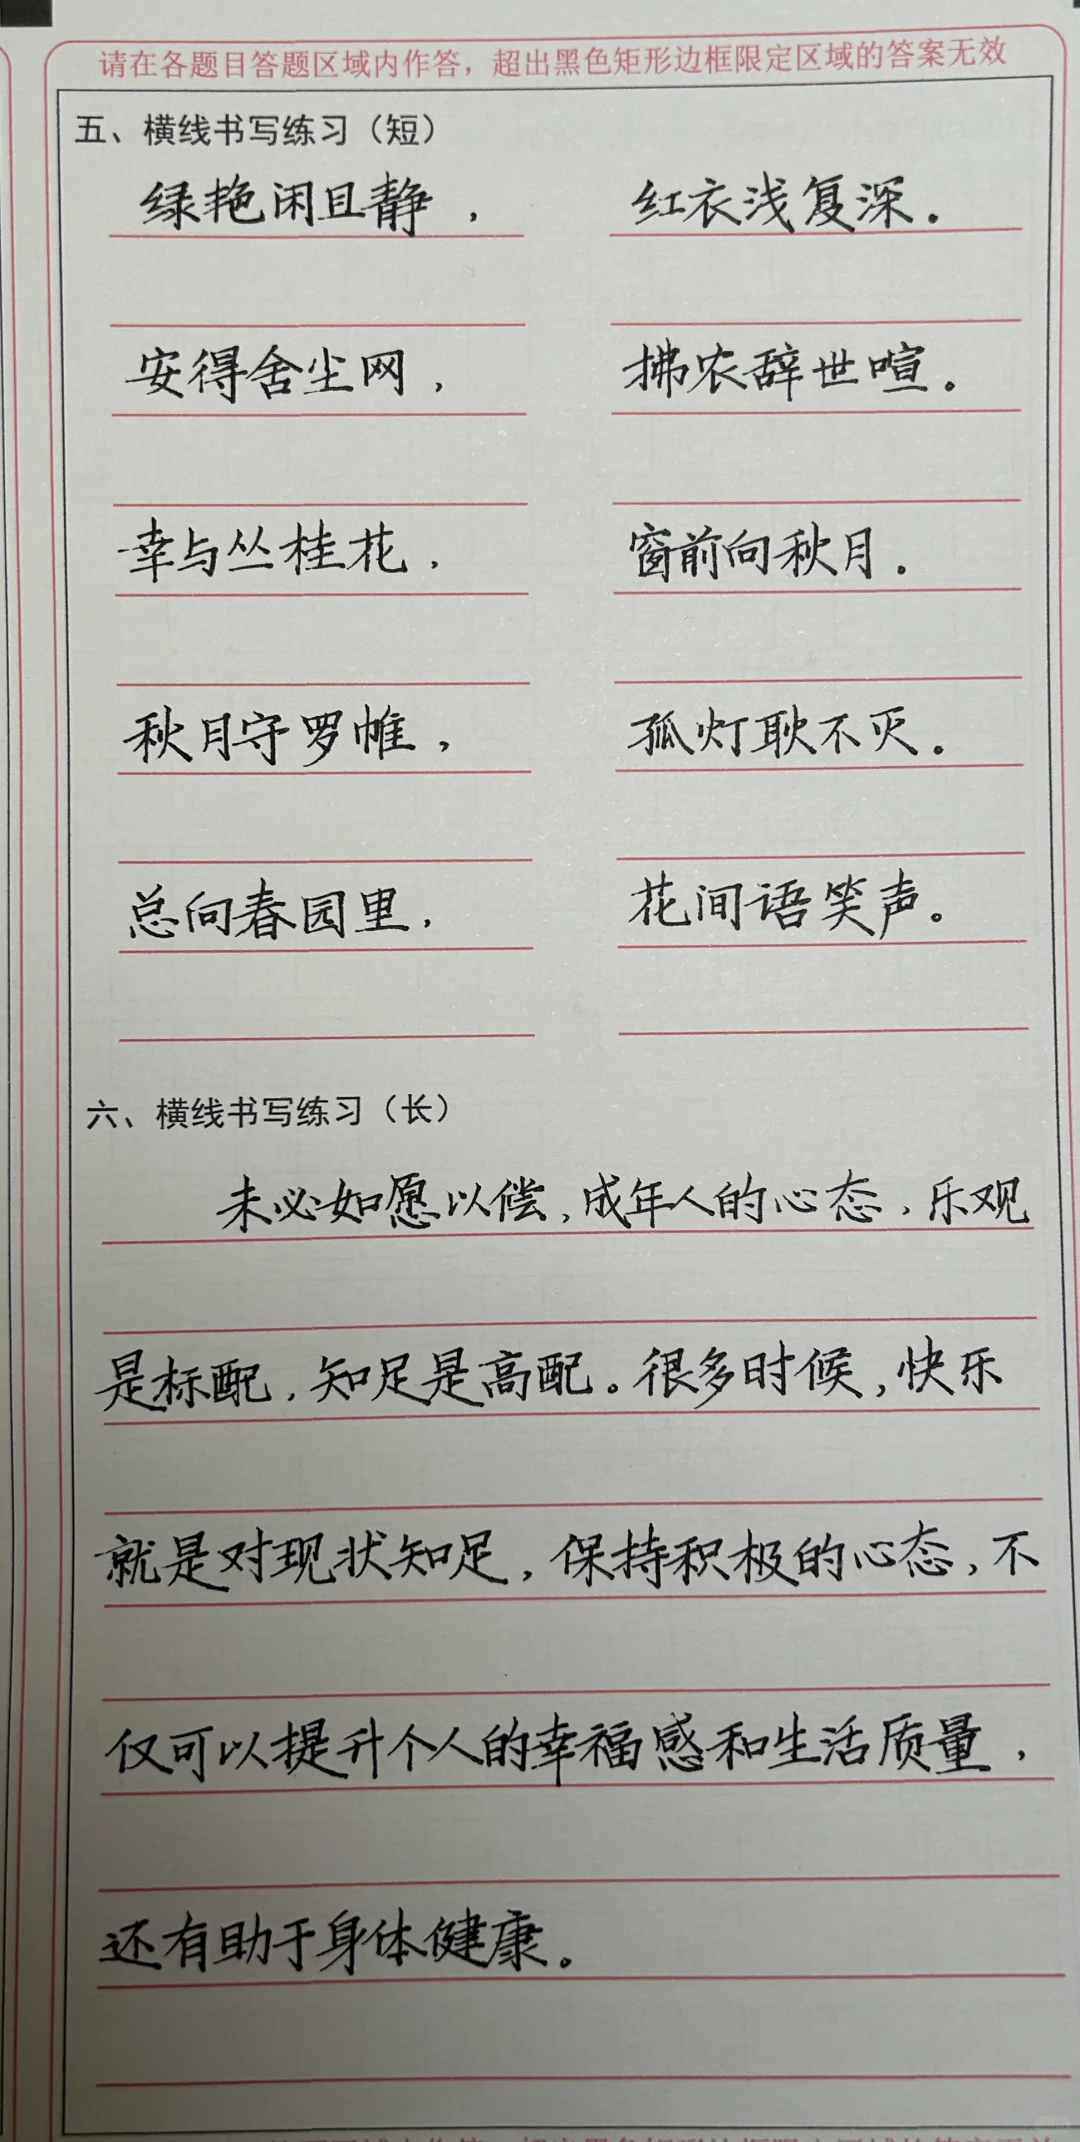 请在各题目答题区域内作答，超出黑色矩形边框限定区域的答案无效
五、横线书写练习（短）
绿艳闲且静，　红衣浅复深。
安得舍尘网，　拂衣辞世喧。
幸与丛桂花，　窗前向秋月。
秋月守罗帷，　孤灯耿不灭。
总向春园里，　花间语笑声。
六、横线书写练习（长）
未必如愿以偿，成年人的心态，乐观
是标配，知足是高配。很多时候，快乐
就是对现状知足，保持积极的心态，不
仅可以提升个人的幸福感和生活质量，
还有助于身体健康。